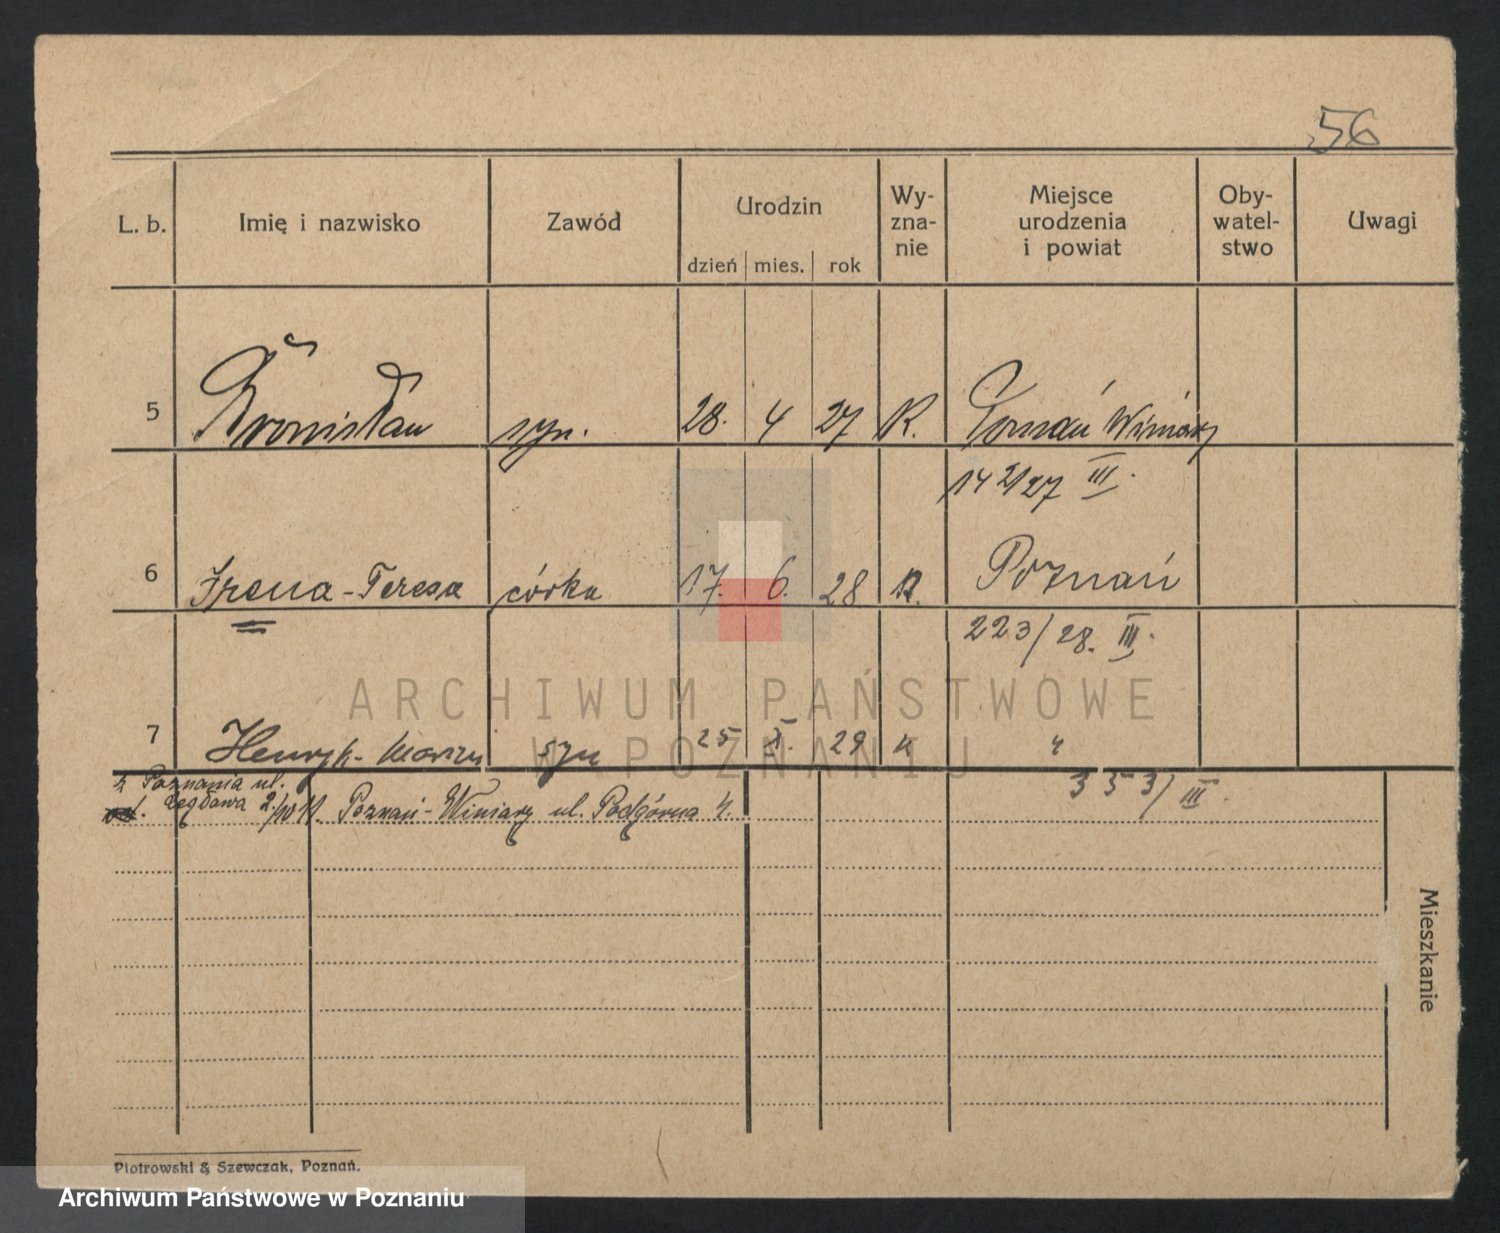 56
L. b. Imię i nazwisko Zawód Urodzin Wy-zna-nie Miejsce urodzenia i powiat Oby-watel-stwo Uwagi
dzień mies. rok
5 Bronisław syn. 28. 4 27 R. Poznań Winiary
142/27 III.
6 Irena-Teresa córka 17. 6. 28 R. Poznań
223/28. III.
7 Henryk- syn 25 X. 29 " "
353/III.
z Poznania ul.
2./10 Poznań-Winiary ul. Podgórna 4.
Mieszkanie
Piotrowski & Szewczak, Poznań.
ARCHIWUM PAŃSTWOWE
W POZNANIU
Archiwum Państwowe w Poznaniu